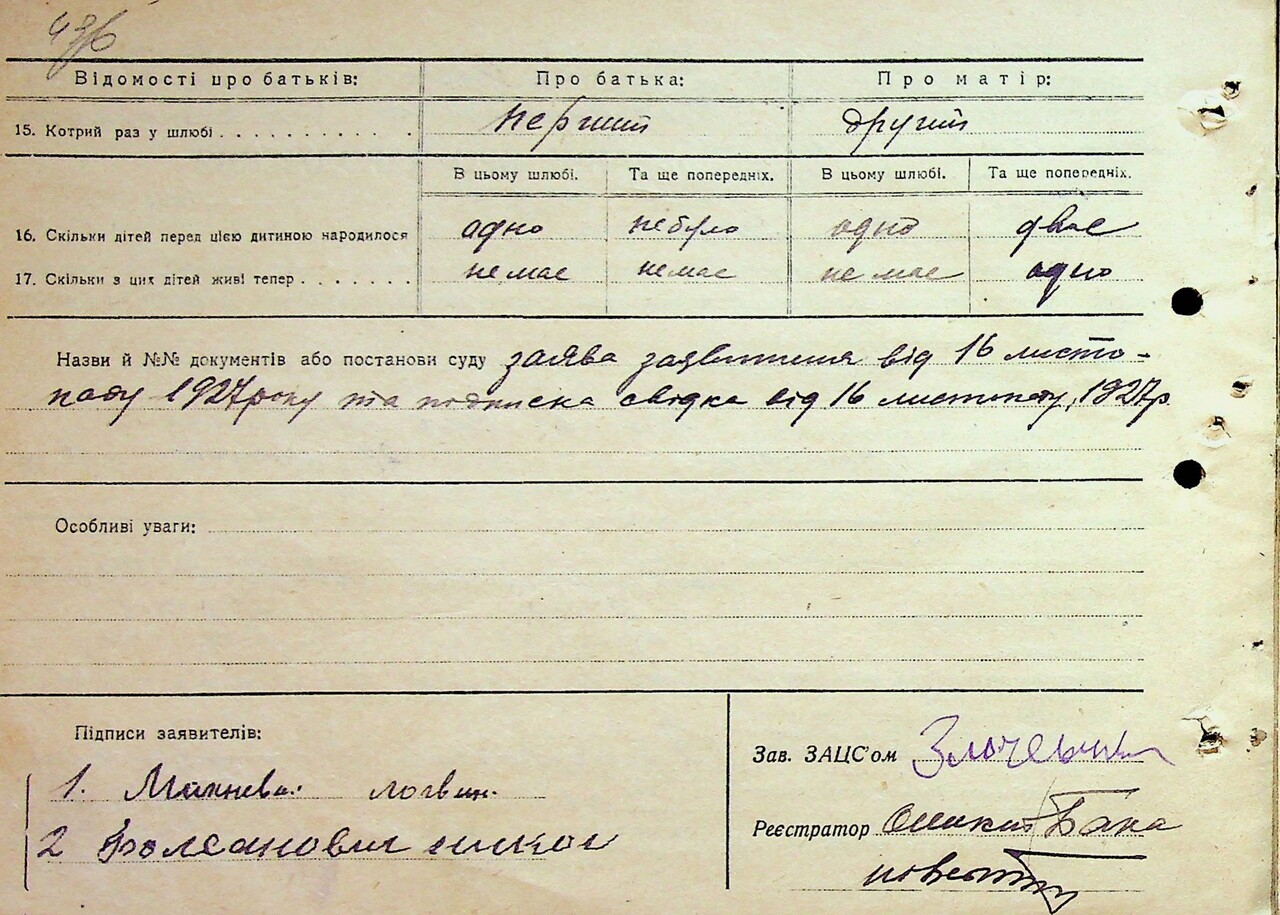 Відомості про батьків: Про батька: Про матір:
15. Котрий раз у шлюбі . . . . . . . . . . . перший другий
В цьому шлюбі. Та ще попередніх. В цьому шлюбі. Та ще попередніх.
16. Скільки дітей перед цією дитиною народилося одно небуло одно двоє
17. Скільки з цих дітей живі тепер . . . . . . . немає немає немає одно
Назви й №№ документів або постанови суду заява заявителя від 16 листо-
паду 1927 року та підписка свідка від 16 листопаду 1927 р.
Особливі уваги:
Підписи заявителів:
Зав. ЗАЦС'ом
1. логвин
Реєстратор
2